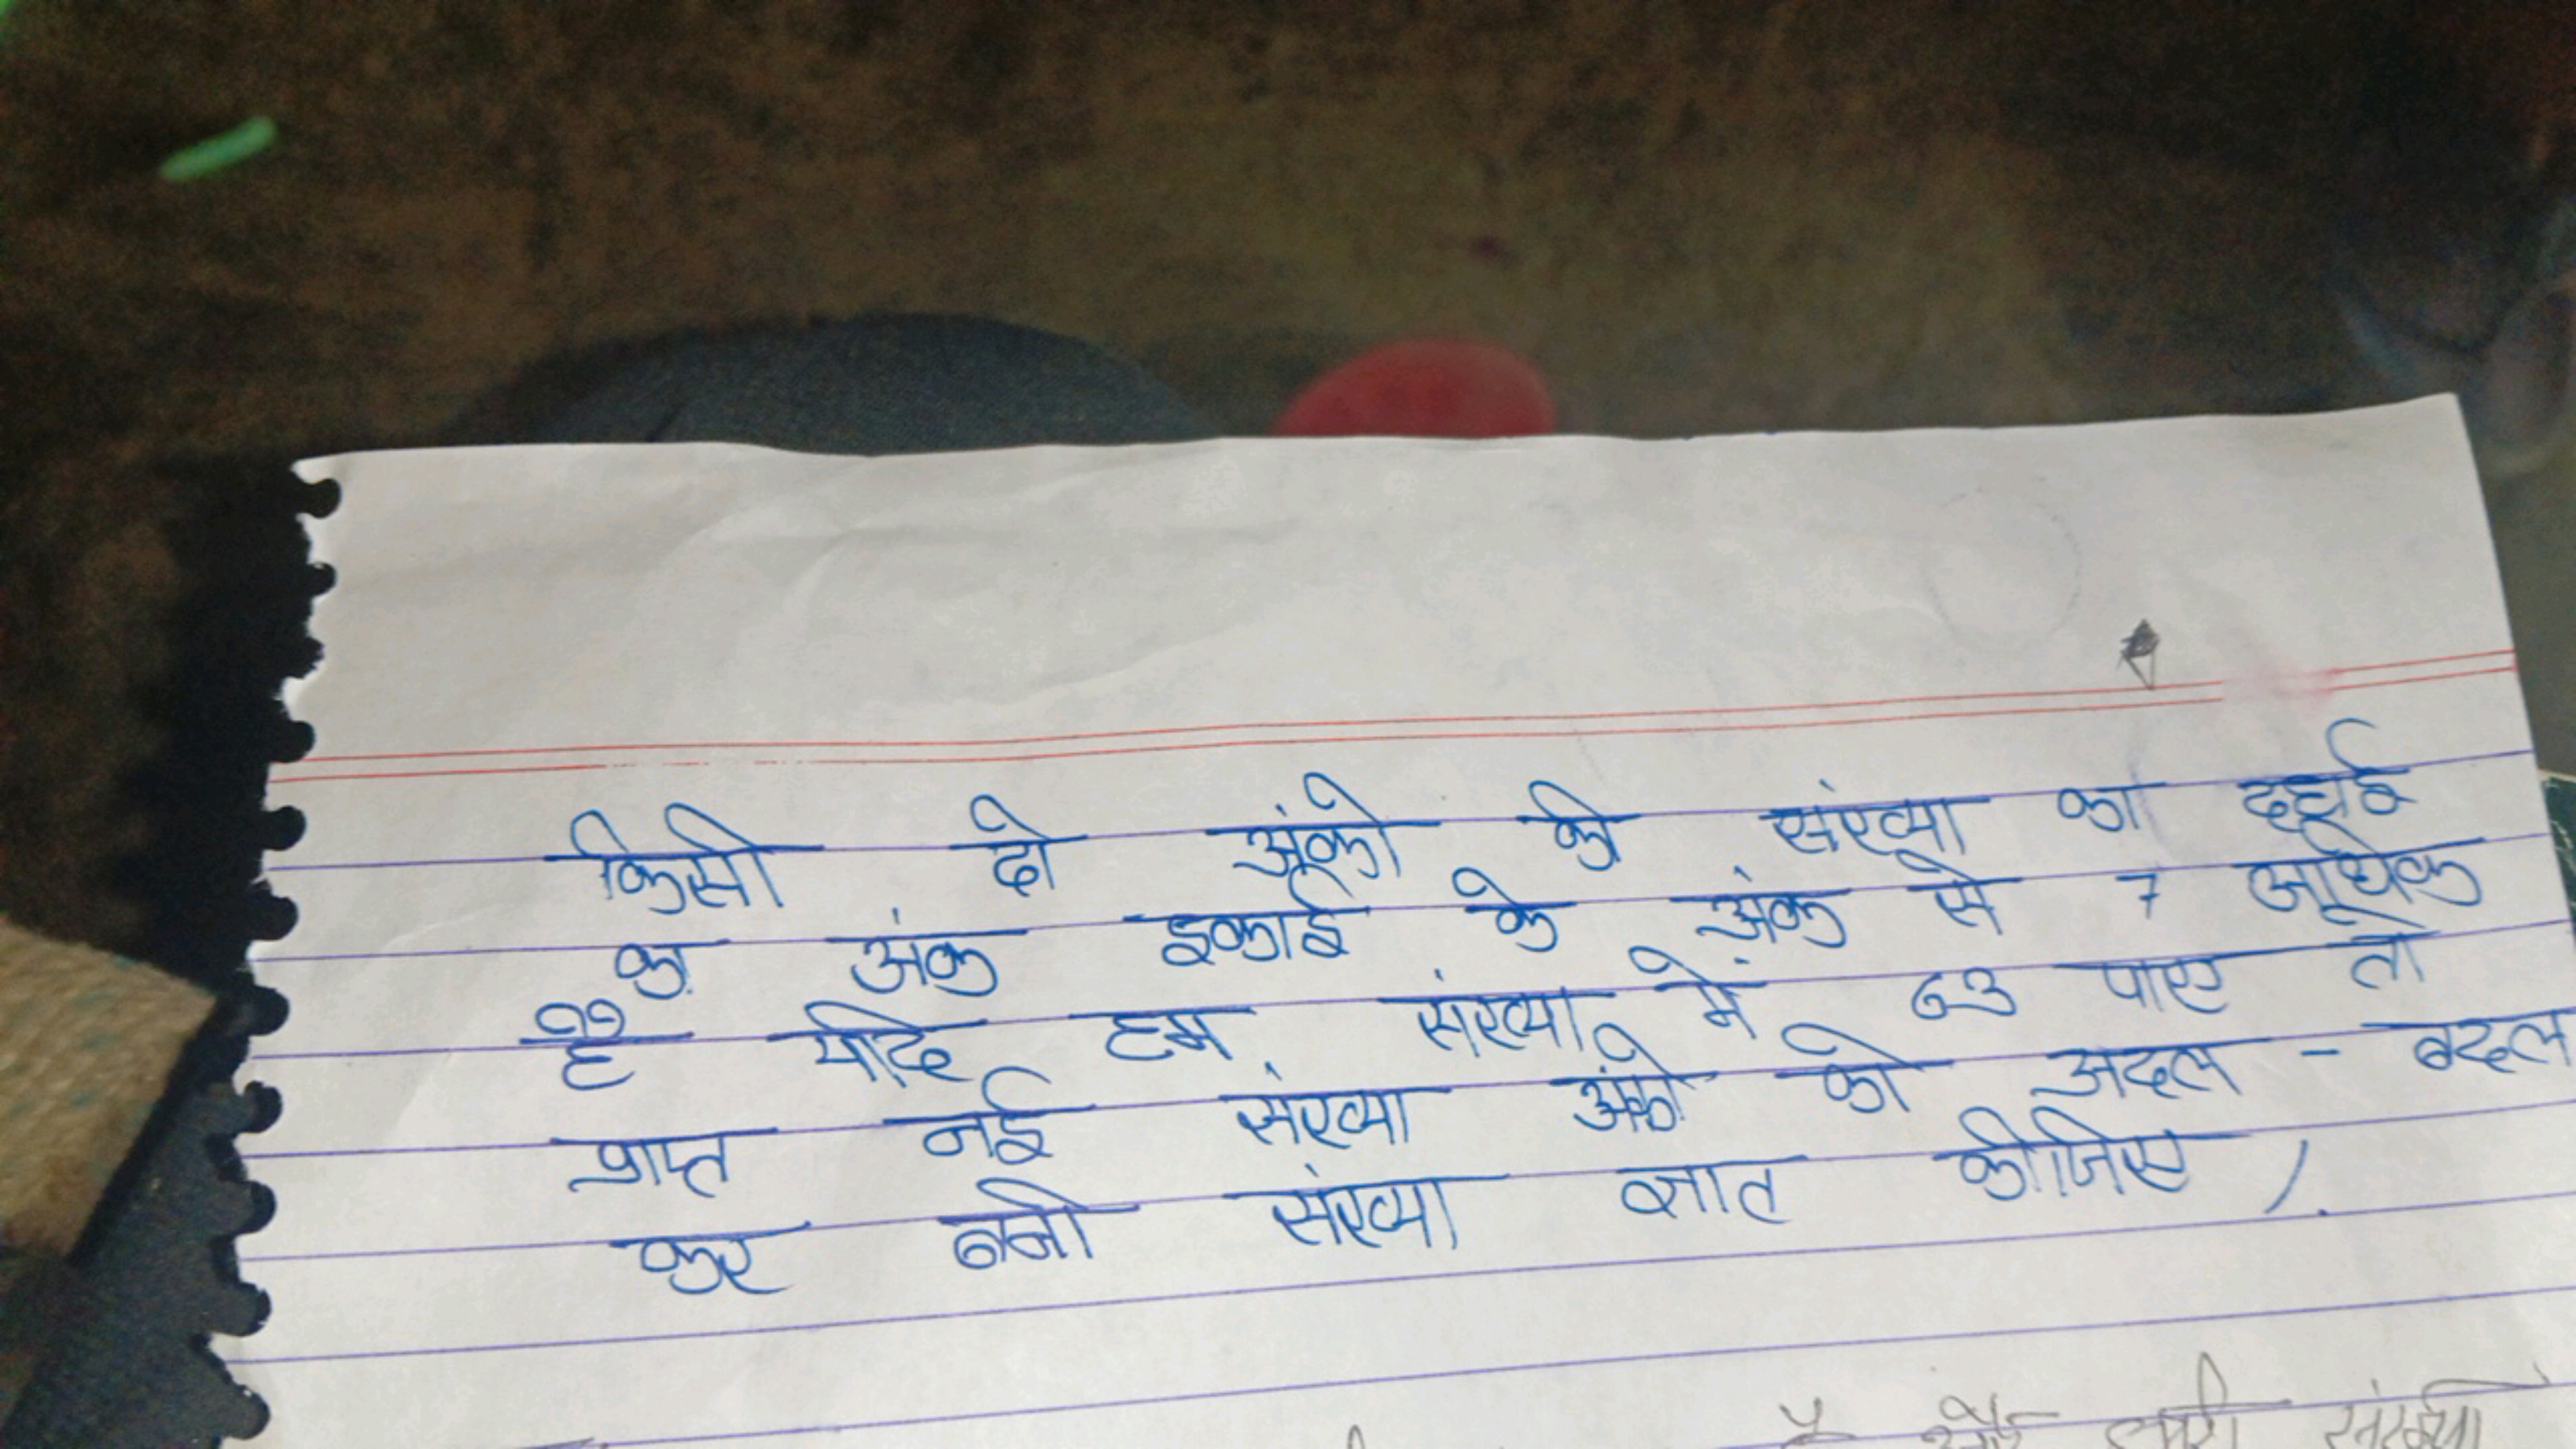 किसी दो अंको की संख्या का दहाई
का अंक इकाई के अंक से 7 अधिक
है यदि हम संख्या में 63 पाए तो
प्राप्त नई संख्या अंको को अदल - बदल
कर बनी संख्या ज्ञात कीजिए /.
संख्या